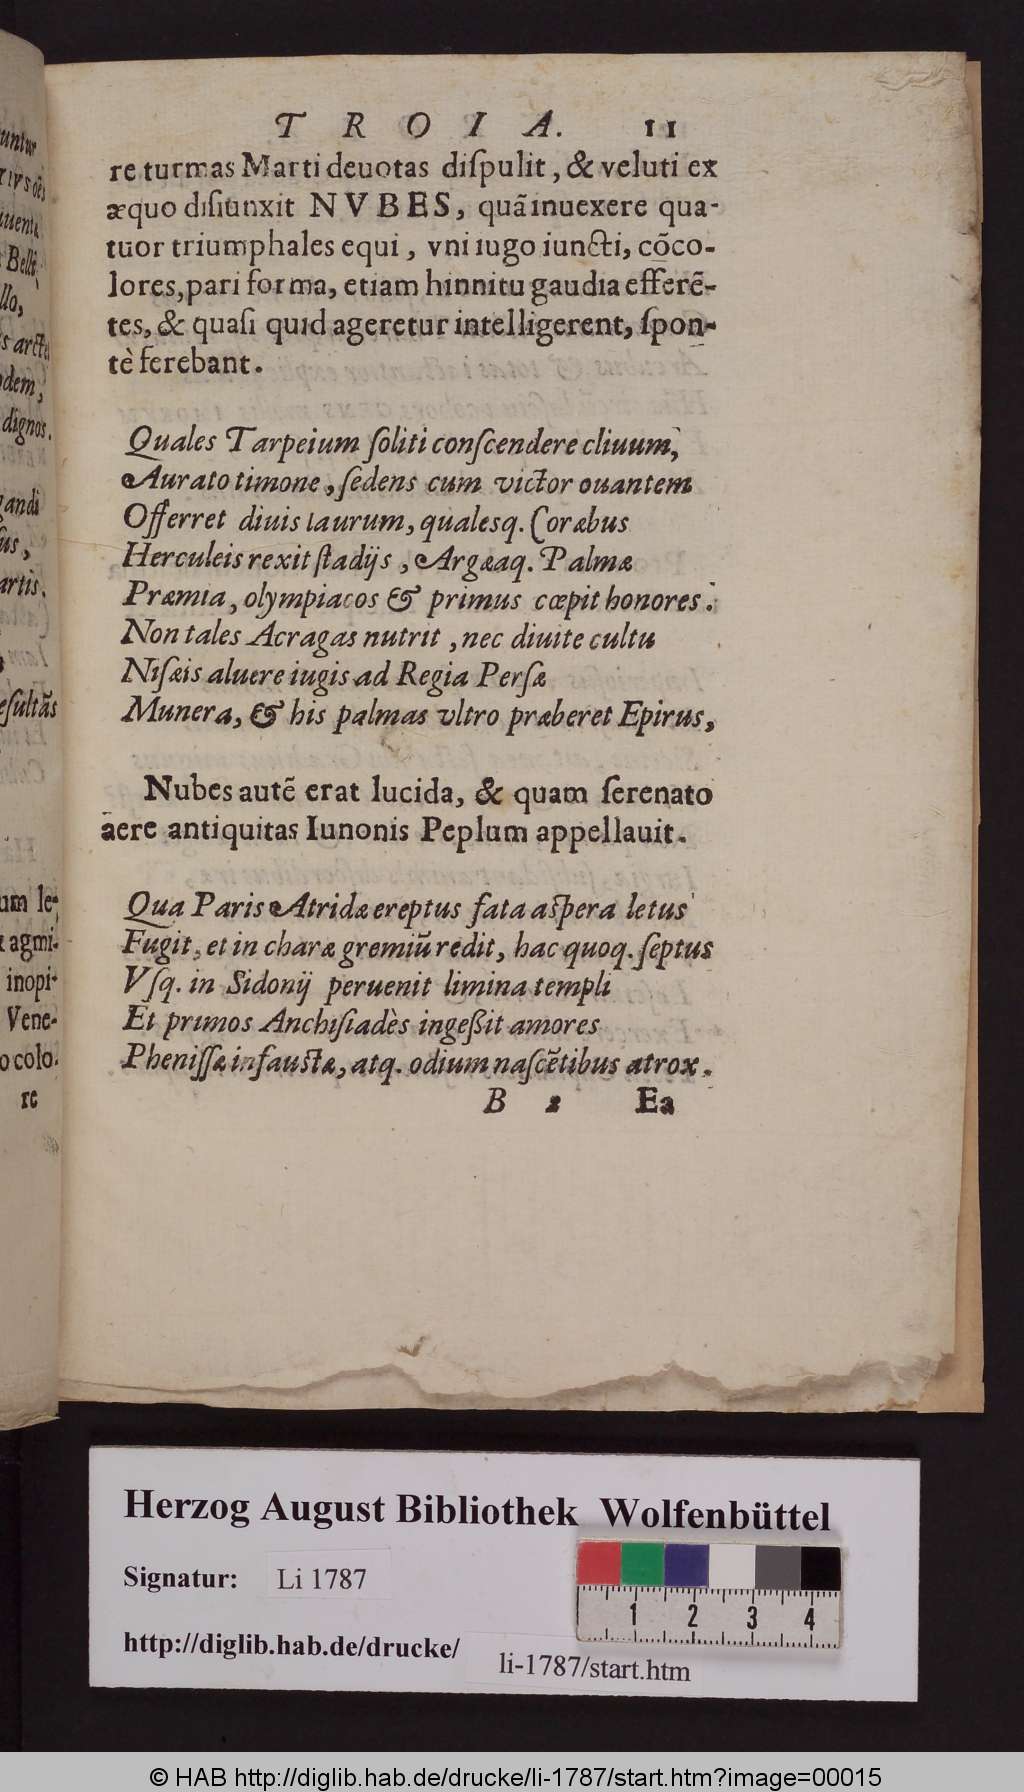 untur
mentẽ
Bellõ
llo,
s arctẽ
dem,
dignos.
gandi
ſus,
artis.
eſultãs
um le-
agmi-
inopi-
Vene-
o colo-
re
TROIA. 11
re turmas Marti deuotas diſpulit, & veluti ex
æquo diſiunxit NVBES, quã inuexere qua-
tuor triumphales equi, vni iugo iuncti, cõco-
lores, pari forma, etiam hinnitu gaudia efferẽ-
tes, & quaſi quid ageretur intelligerent, ſpon-
tè ferebant.
Quales Tarpeium ſoliti conſcendere cliuum,
Aurato timone, ſedens cum victor ouantem
Offerret diuis laurum, qualesq. Coræbus
Herculeis rexit ſtadijs, Argæaq. Palmæ
Præmia, olympiacos & primus cœpit honores.
Non tales Acragas nutrit, nec diuite cultu
Niſæis aluere iugis ad Regia Perſæ
Munera, & his palmas vltro præberet Epirus,
Nubes autẽ erat lucida, & quam ſerenato
aere antiquitas Iunonis Peplum appellauit.
Qua Paris Atridæ ereptus fata aſpera letus
Fugit, et in charæ gremiũ redit, hac quoq. ſeptus
Vſq. in Sidonij peruenit limina templi
Et primos Anchiſiadès ingeßit amores
Pheniſſæ infauſtæ, atq. odium naſcẽtibus atrox.
B 2 Ea
Herzog August Bibliothek Wolfenbüttel
Signatur: Li 1787
1 2 3 4
http://diglib.hab.de/drucke/ li-1787/start.htm
© HAB http://diglib.hab.de/drucke/li-1787/start.htm?image=00015